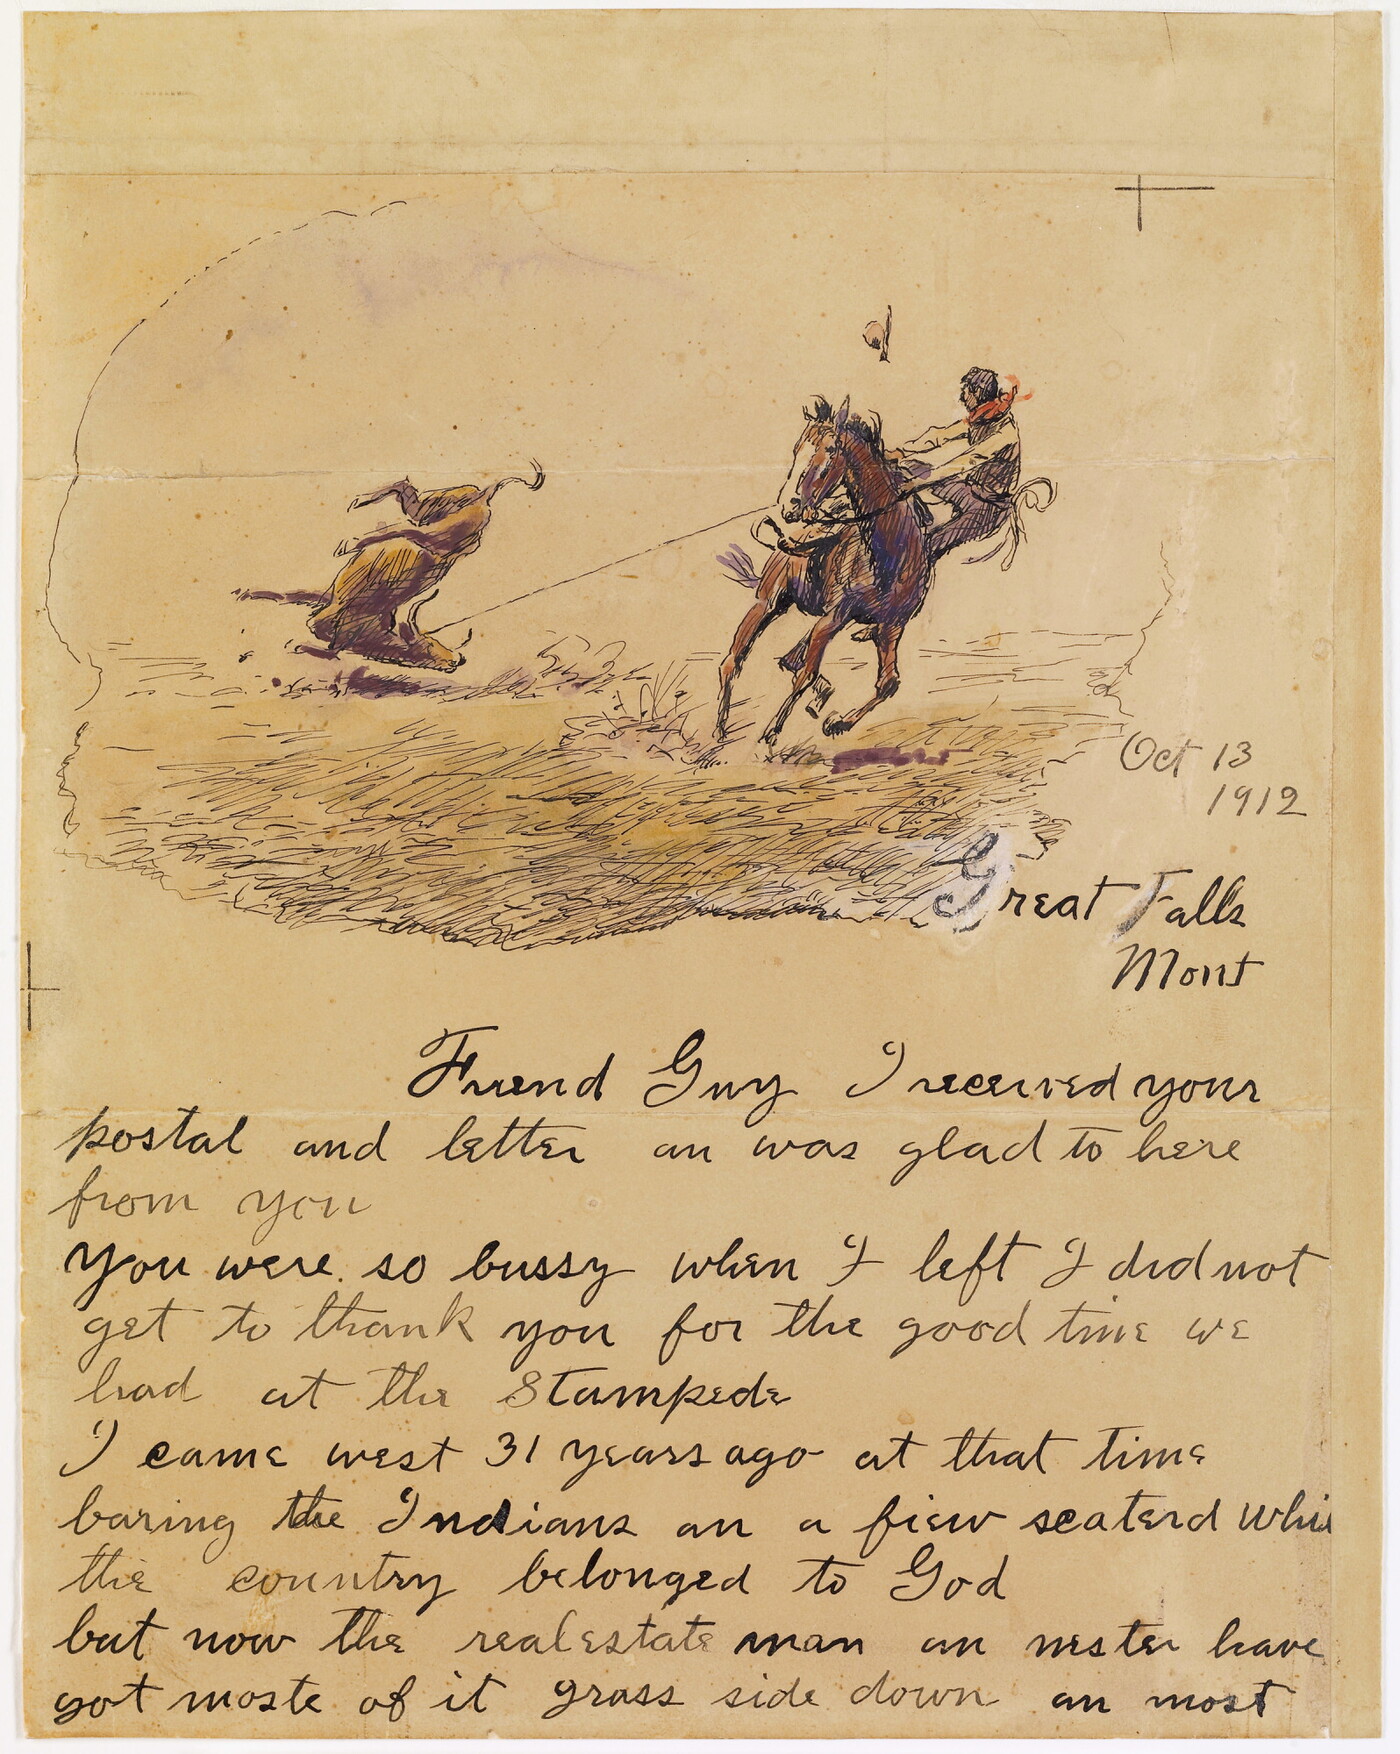 Oct 13
1912
Great Falls
Mont
Friend Guy I received your
postal and letter an was glad to here
from you
you were so bussy when I left I did not
get to thank you for the good time we
had at the Stampede
I came west 31 years ago at that time
baring the Indians an a fiew scaterd whi
the country belonged to God
but now the real estate man an nester have
got moste of it grass side down an most